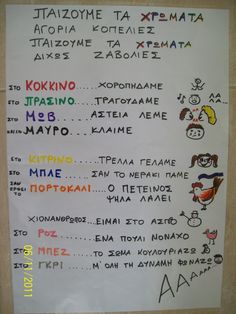 ΠΑΙΖΟΥΜΕ ΤΑ ΧΡΩΜΑΤΑ
ΑΓΟΡΙΑ ΚΟΠΕΛΙΕΣ
ΠΑΙΖΟΥΜΕ ΤΑ ΧΡΩΜΑΤΑ
ΔΙΧΩΣ ΖΑΒΟΛΙΕΣ
ΣΤΟ ΚΟΚΚΙΝΟ......ΧΟΡΟΠΗΔΑΜΕ
ΣΤΟ ΠΡΑΣΙΝΟ....ΤΡΑΓΟΥΔΑΜΕ
ΣΤΟ ΜΩΒ..........ΑΣΤΕΙΑ ΛΕΜΕ
ΜΑΥΡΟ....ΚΛΑΙΜΕ
ΣΤΟ ΚΙΤΡΙΝΟ......ΤΡΕΛΛΑ ΓΕΛΑΜΕ
ΣΤΟ ΜΠΛΕ.....ΣΑΝ ΤΟ ΝΕΡΑΚΙ ΠΑΜΕ
ΣΑΝ ΕΡΘΕΙ ΤΟ ΠΟΡΤΟΚΑΛΙ...Ο ΠΕΤΕΙΝΟΣ
ΨΗΛΑ ΛΑΛΕΙ
ΧΙΟΝΑΝΘΡΩΠΟΣ...ΕΙΜΑΙ ΣΤΟ ΑΣΠΡΟ
ΣΤΟ ΡΟΖ.....ΕΝΑ ΠΟΥΛΙ ΜΟΝΑΧΟ
ΣΤΟ ΜΠΕΖ....ΤΟ ΣΩΜΑ ΚΟΥΛΟΥΡΙΑΖΩ
ΣΤΟ ΓΚΡΙ....Μ' ΟΛΗ ΤΗ ΔΥΝΑΜΗ ΦΩΝΑΖΩ